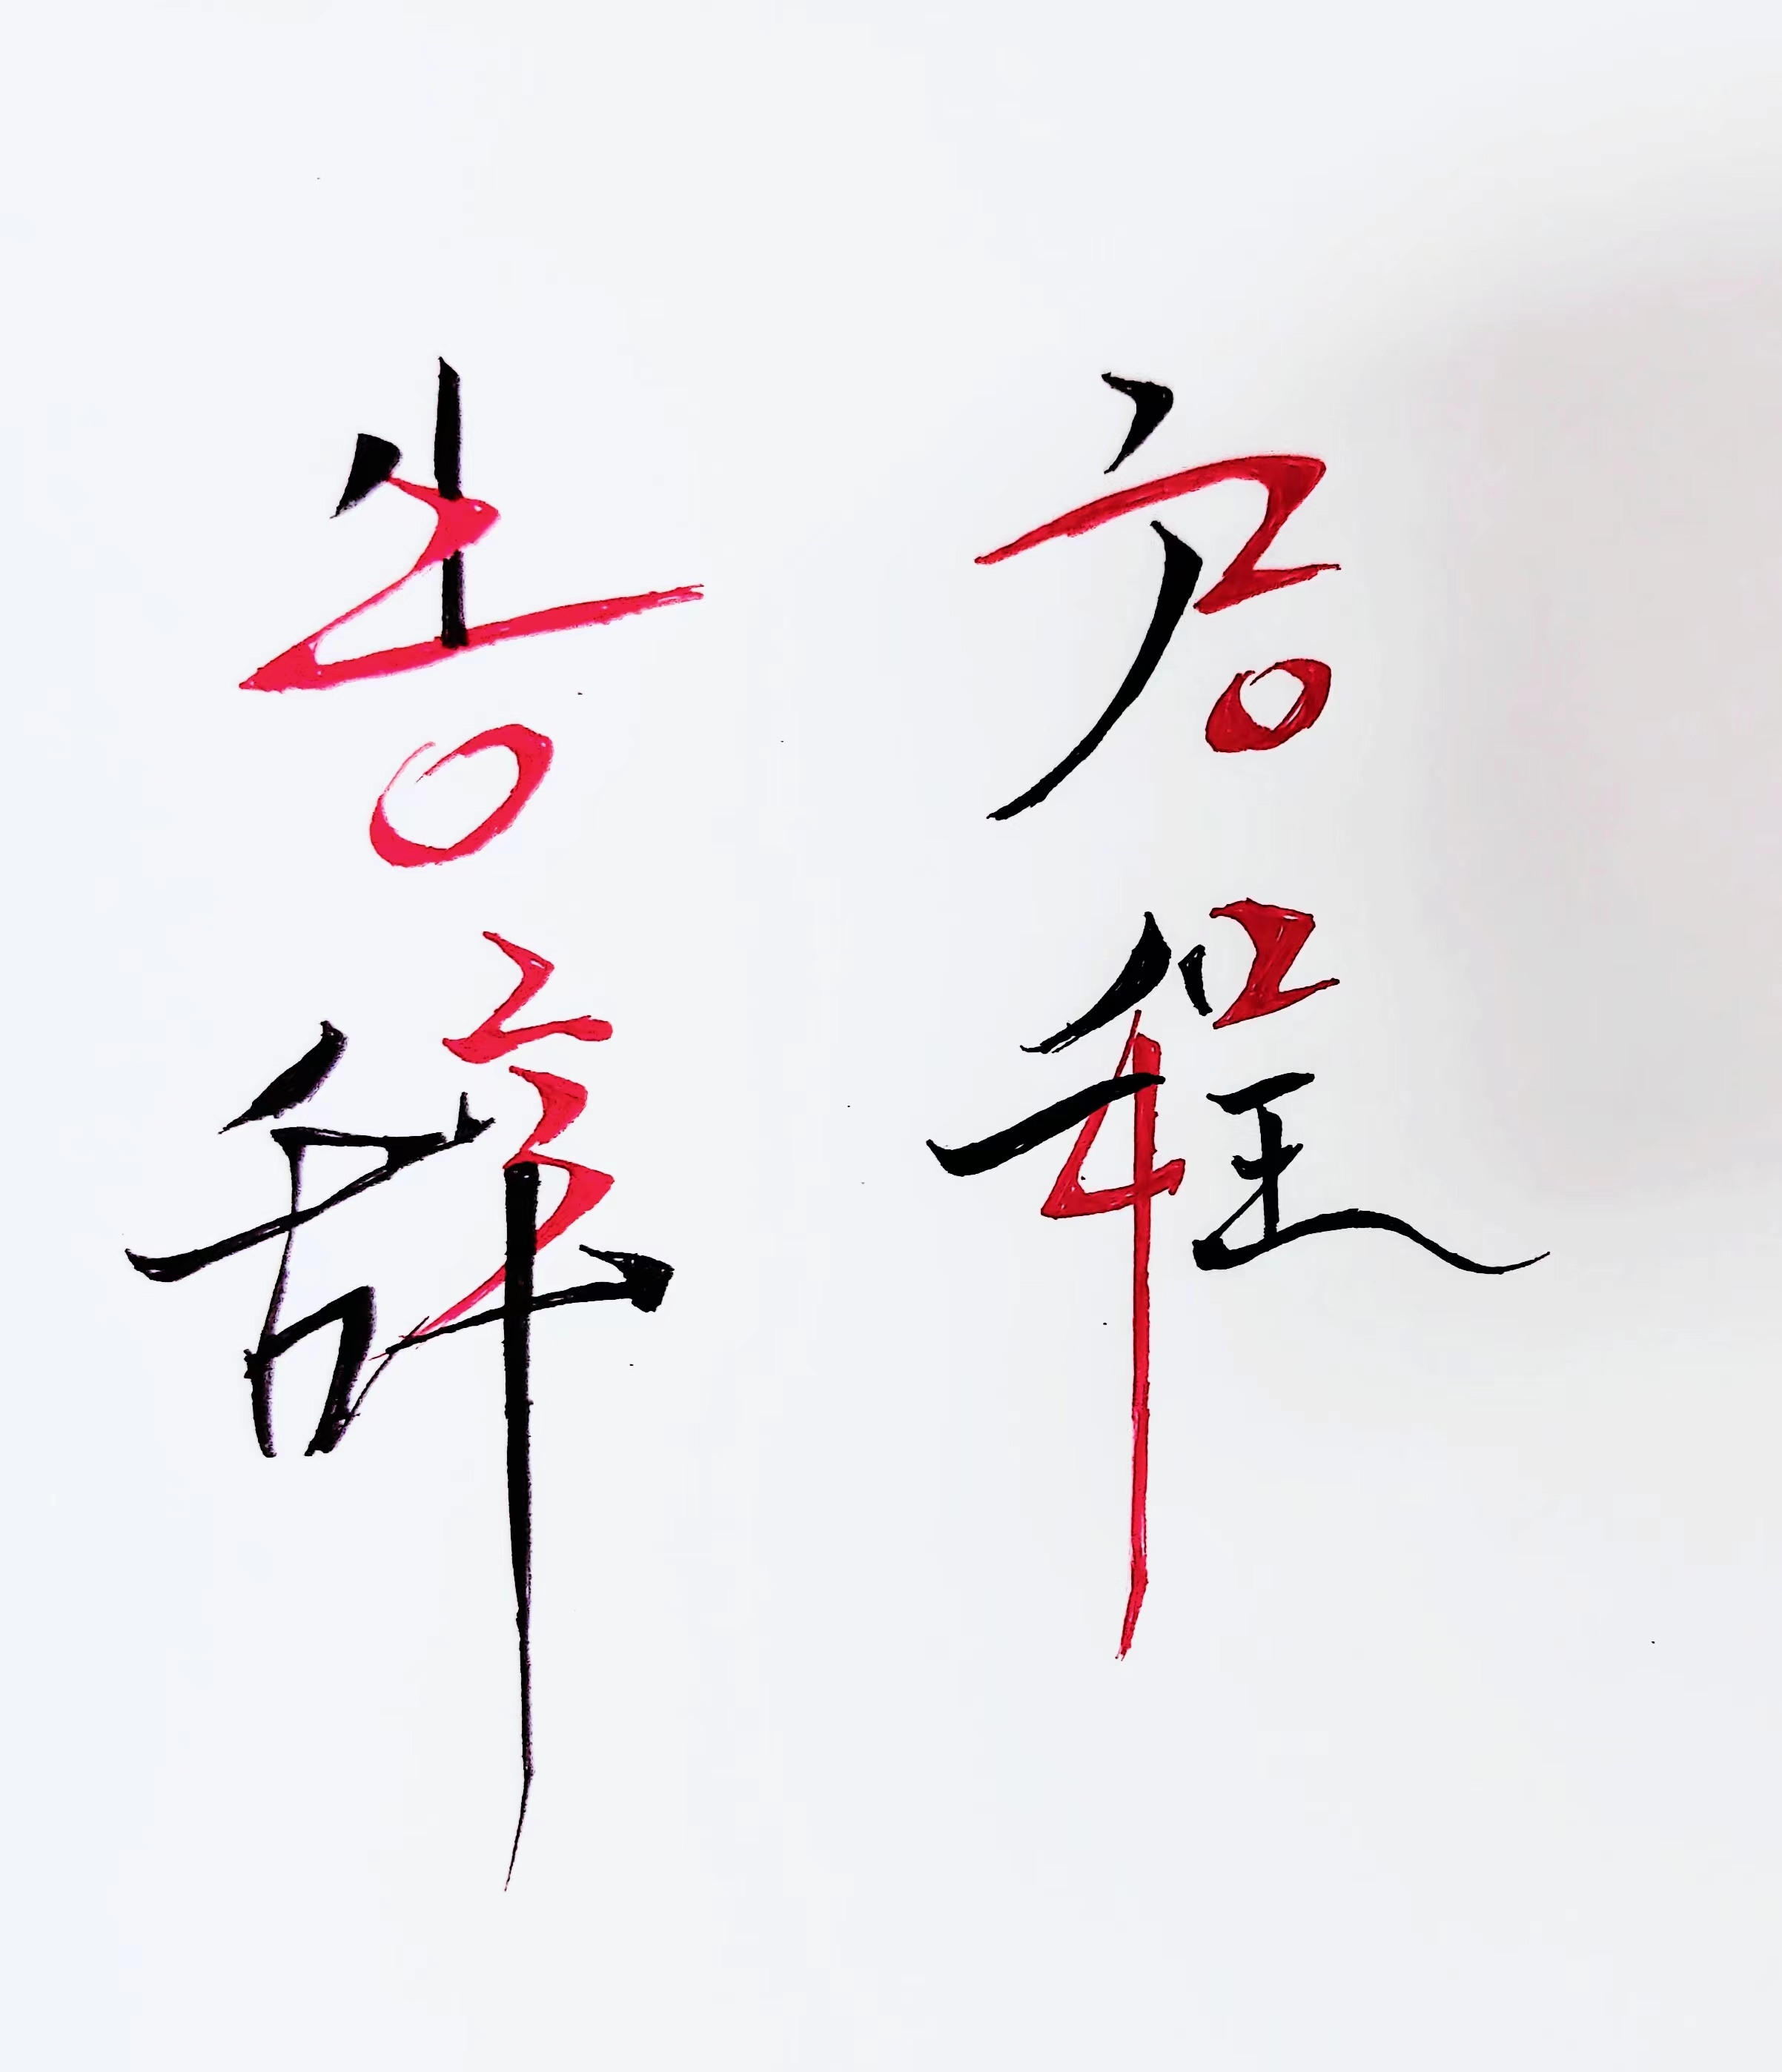 告辞
启程